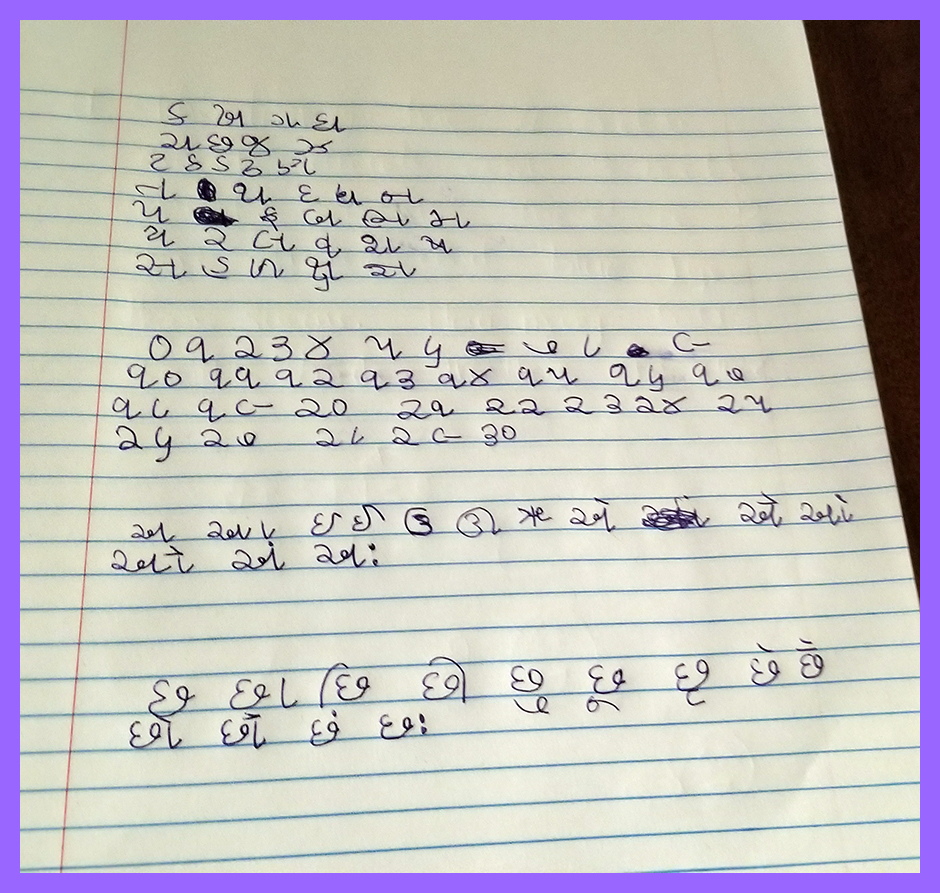 ક ખ ગ ઘ
ચ છ જ ઝ
ટ ઠ ડ ઢ ણ
ત થ દ ધ ન
પ ફ બ ભ મ
ય ર લ વ શ ષ
સ હ ળ ક્ષ જ્ઞ
૦ ૧ ૨ ૩ ૪ ૫ ૬ ૭ ૮ ૯
૧૦ ૧૧ ૧૨ ૧૩ ૧૪ ૧૫ ૧૬ ૧૭
૧૮ ૧૯ ૨૦ ૨૧ ૨૨ ૨૩ ૨૪ ૨૫
૨૬ ૨૭ ૨૮ ૨૯ ૩૦
અ આ ઇ ઈ ઉ ઊ ઋ એ ઐ ઓ
ઔ અં અઃ
છ છા છિ છી છુ છૂ છૃ છે છૈ
છો છૌ છં છઃ